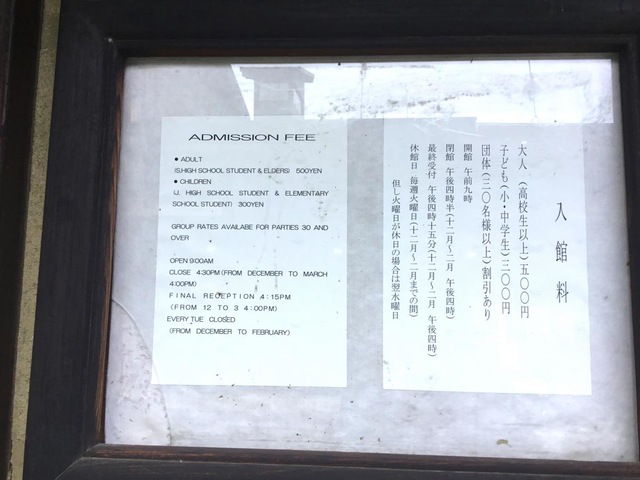 ADMISSION FEE
● ADULT
(S.HIGH SCHOOL STUDENT & ELDERS) 500YEN
● CHILDREN
(J. HIGH SCHOOL STUDENT & ELEMENTARY
SCHOOL STUDENT) 300YEN
GROUP RATES AVAILABE FOR PARTIES 30 AND
OVER
OPEN 9:00AM
CLOSE 4:30PM (FROM DECEMBER TO MARCH
4:00PM)
FINAL RECEPTION 4:15PM
(FROM 12 TO 3 4:00PM)
EVERY TUE CLOSED
(FROM DECEMBER TO FEBRUARY)
入館料
大人（高校生以上）五〇〇円
子ども（小・中学生）三〇〇円
団体（三〇名様以上）割引あり
開館 午前九時
閉館 午後四時半（十二月～二月 午後四時）
最終受付 午後四時十五分（十二月～二月 午後四時）
休館日 毎週火曜日（十二月～二月までの間）
但し火曜日が休日の場合は翌水曜日